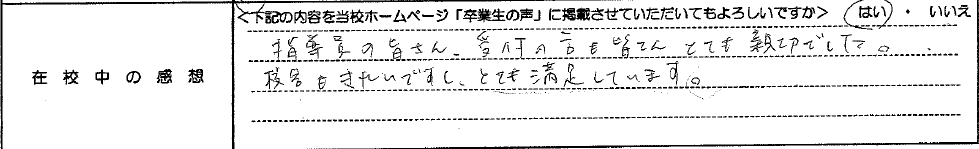 <下記の内容を当校ホームページ「卒業生の声」に掲載させていただいてもよろしいですか> はい ・ いいえ
在校中の感想
指導員の皆さん、受付の方も皆さんとても親切でした。
校舎もきれいですし、とても満足しています。